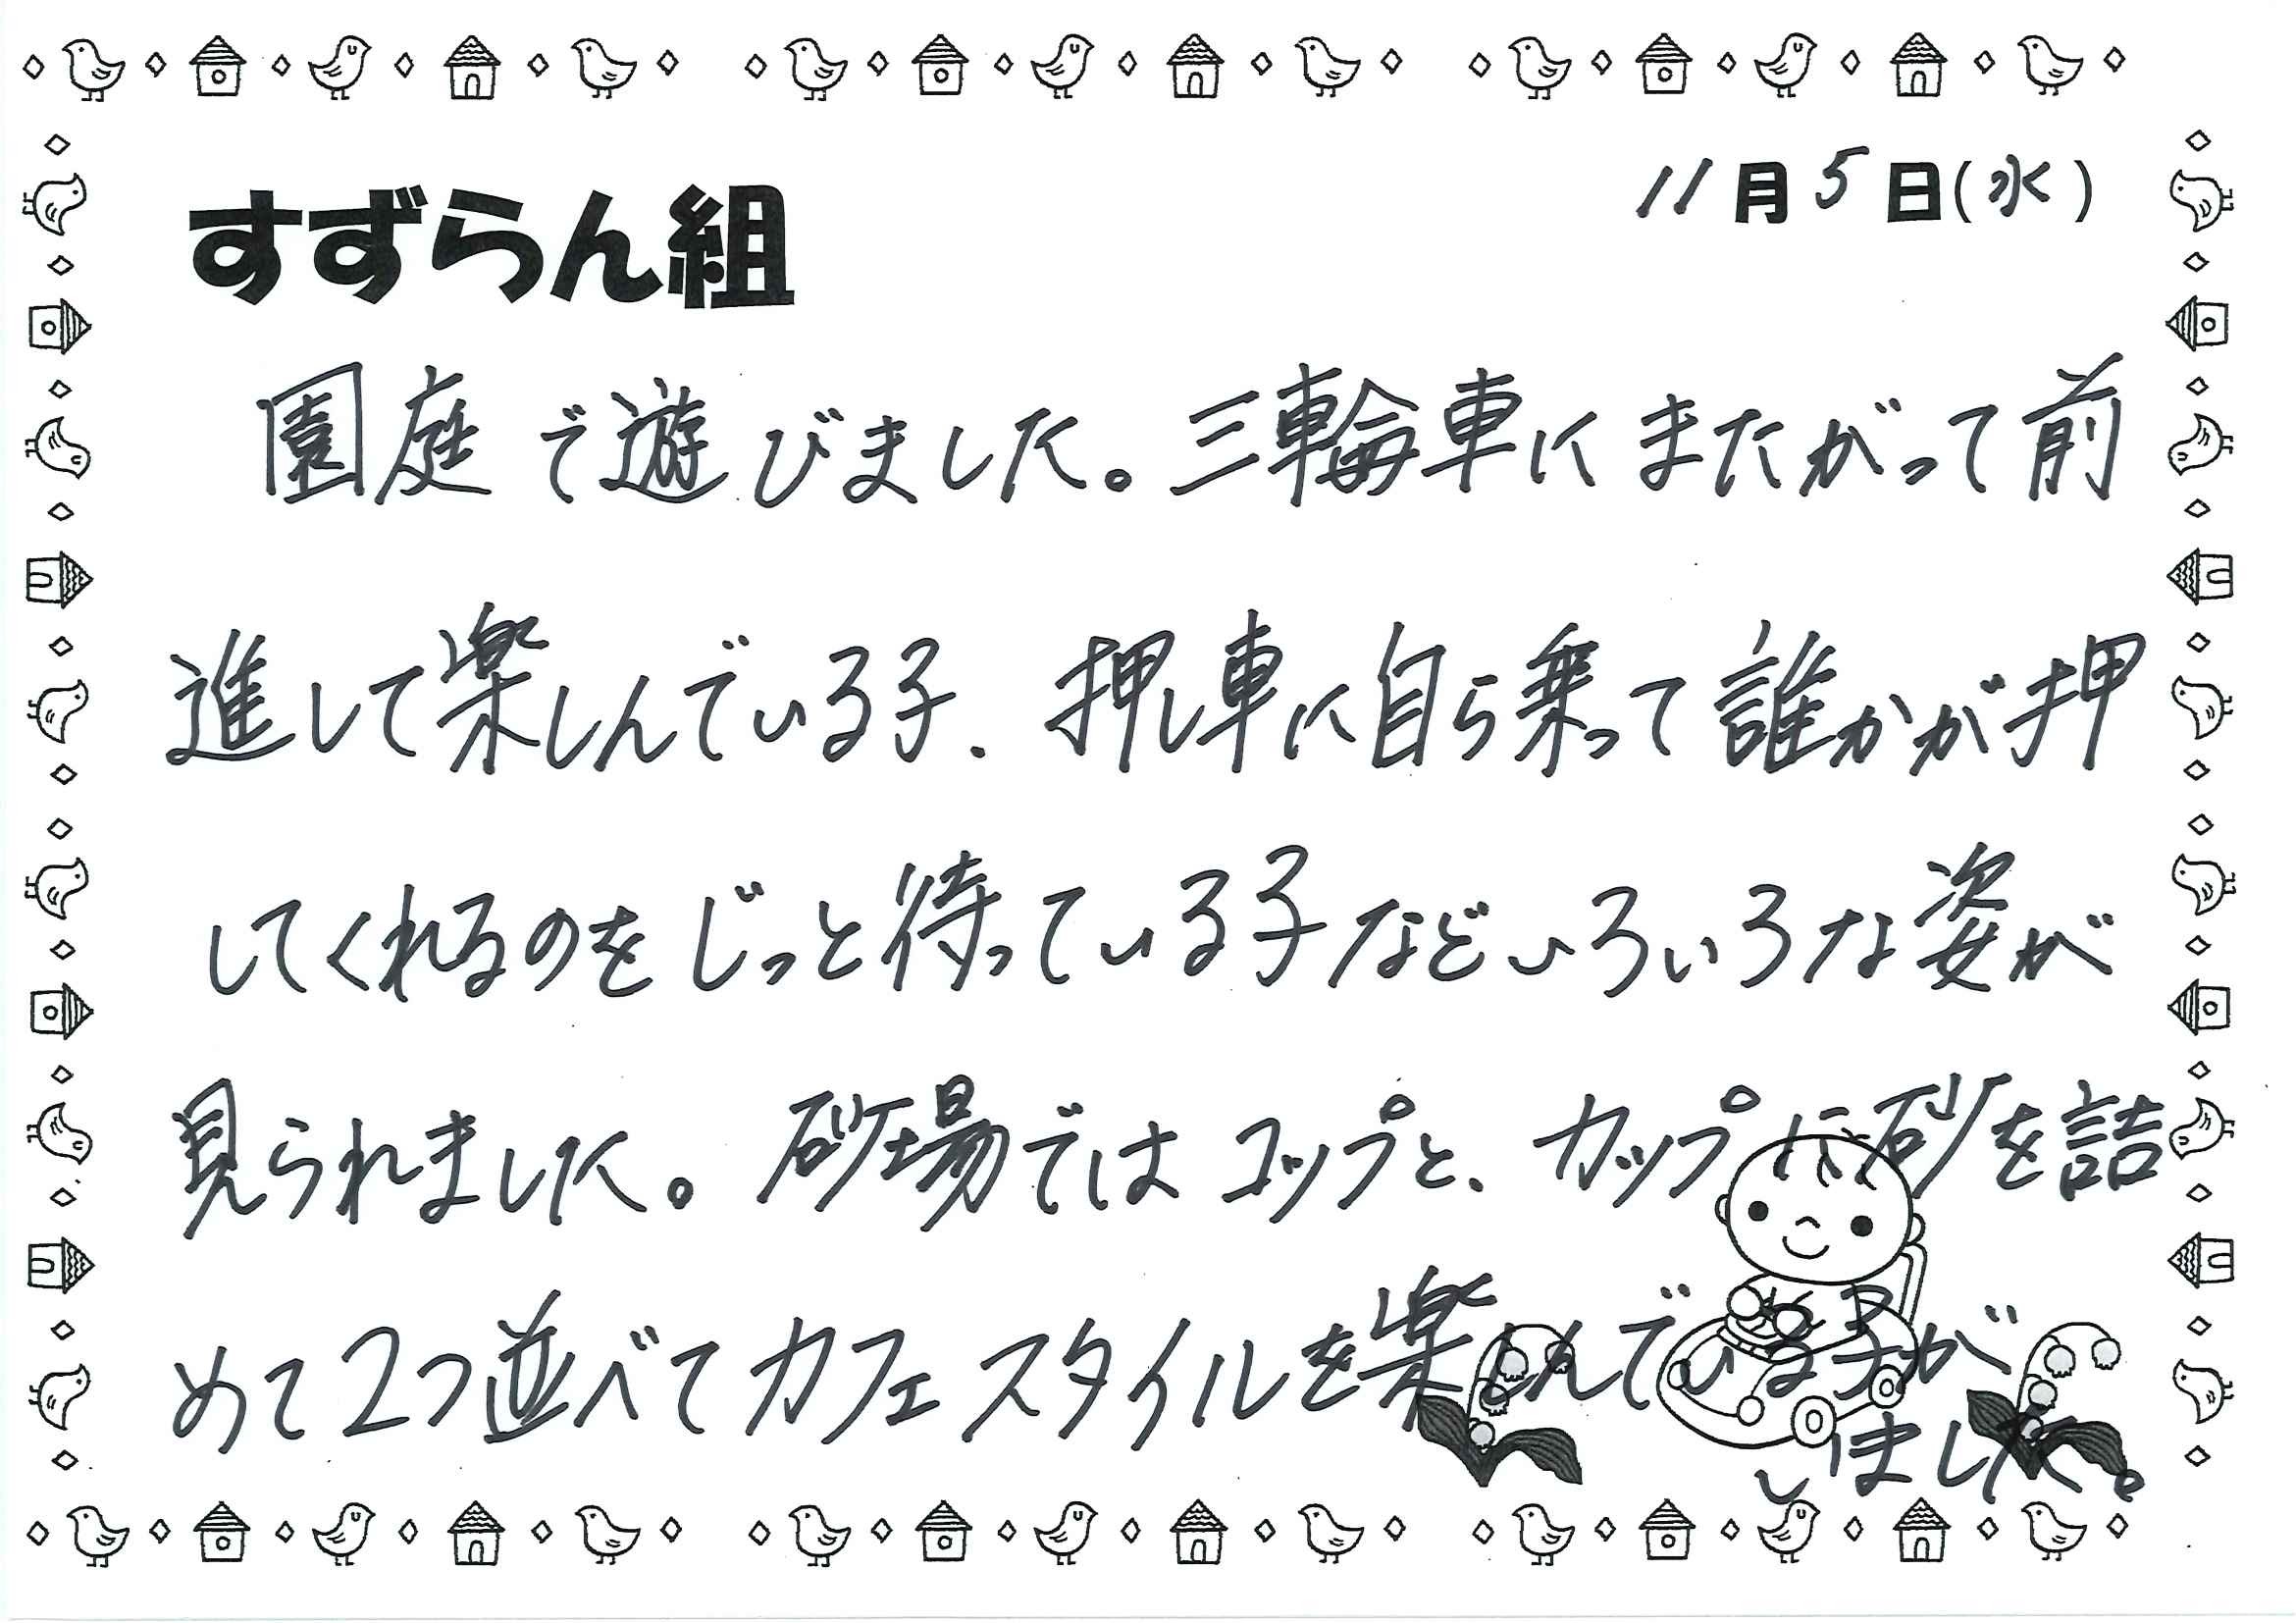 11月5日(水)
すずらん組
園庭で遊びました。三輪車にまたがって前
進して楽しんでいる子、押し車に自ら乗って誰かが押
してくれるのをじっと待っている子などいろいろな姿が
見られました。砂場ではコップと、カップに砂を詰
めて2つ並べてカフェスタイルを楽しんでいる子が
いました。